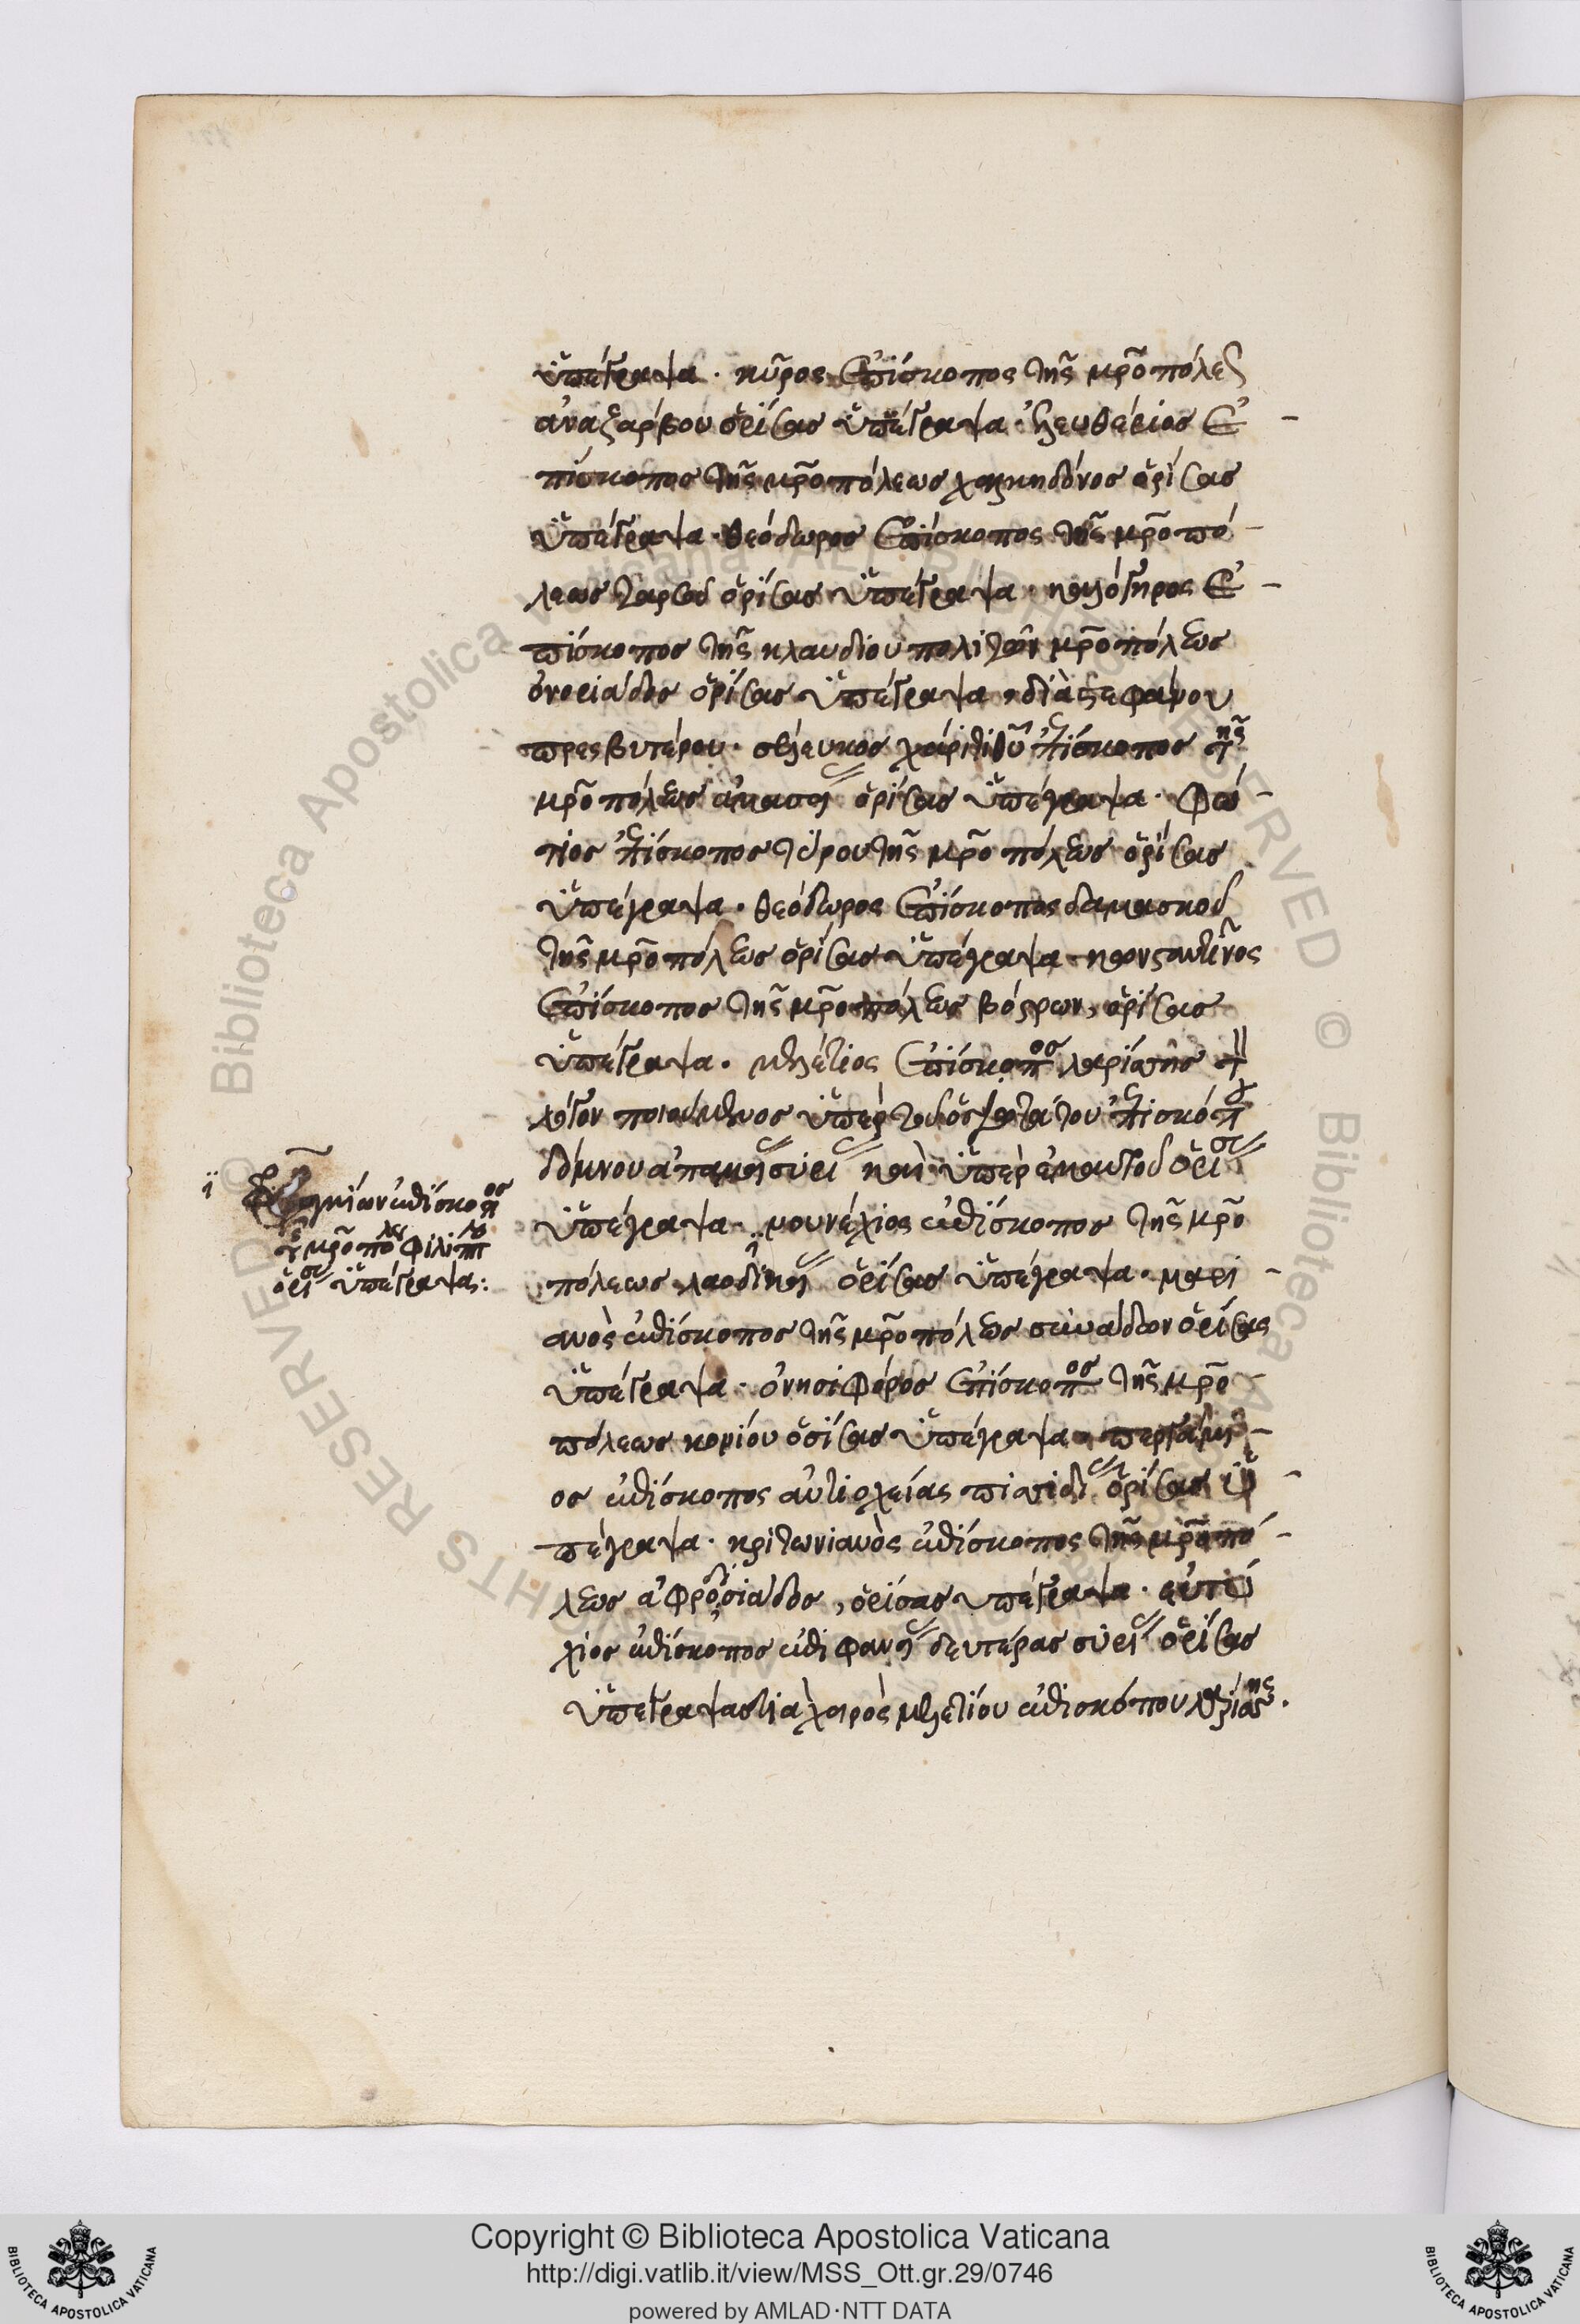 ὑπέγραψα · κῦρος ἐπίσκοπος τῆς μρ̅οπόλεως
ἀναζαρβου ὁρίσας ὑπέγραψα · ἐλευθέριος ἐ
πίσκοπος τῆς μρ̅οπόλεως χαλκηδόνος ὁρίσας
ὑπέγραψα · θεόδωρος ἐπίσκοπος τῆς μρ̅οπό
λεως ταρσοῦ ὁρίσας ὑπέγραψα · καλόγηρος ἐ
πίσκοπος τῆς κλαυδίου πολιτῶν μρ̅οπόλεως
ὀνοριάδος ὁρίσας ὑπέγραψα, διὰ στεφάνου
πρεσβυτέρου · σέλευκος χάριτι θῡ ἐπίσκοπος τῆς
μρ̅οπόλεως ἀμασεί ὁρίσας ὑπέγραψα · φώ
τιος ἐπίσκοπος τύρου τῆς μρ̅οπόλεως ὁρίσας
ὑπέγραψα · θεόδωρος ἐπίσκοπος δαμασκοῦ
τῆς μρ̅οπόλεως ὁρίσας ὑπέγραψα · κονσταντῖνος
ἐπίσκοπος τῆς μρ̅οπόλεως βόστρων, ὁρίσας
ὑπέγραψα · μελέτιος ἐπίσκοπος λαρίσσης τ
λόγον ποιούμενος ὑπὲρ τοῦ ὁσιωτάτου ἐπισκόπ
δόμνου ἀπαμεί συρί καὶ ὑπὲρ ἐμαυτοῦ ὁρίσ
ὑπέγραψα · μουνέχιος ἐπίσκοπος τῆς μρ̅ο
πόλεως λαοδικεί ὁρίσας ὑπέγραψα · μαρι
ανὸς ἐπίσκοπος τῆς μρ̅οπόλεως συνάδων ὁρίσας
ὑπέγραψα · ὀνησιφόρος ἐπίσκοπος τῆς μρ̅ο
πόλεως κονίου ὁσίσας ὑπέγραψα · περγάμι
ος ἐπίσκοπος ἀντιοχείας πισιδ ὁρίσας ὑ
πέγραψα · κριτωνιανὸς ἐπίσκοπος τῆς μρ̅οπό
λεως ἀφροδισιάδος, ὁρίσας ὑπέγραψα · εὐτύ
χιος ἐπίσκοπος ἐπιφανεί δευτέρας συρί ὁρίσας
ὑπέγραψα διὰ χειρὸς μελετίου ἐπισκόπου λαρίσσης ·
ἐπίσκοπος
τῆς μρ̅οπόλεως φιλίππ
ὁρίσ ὑπέγραψα :
Copyright © Biblioteca Apostolica Vaticana
http://digi.vatlib.it/view/MSS_Ott.gr.29/0746
powered by AMLAD·NTT DATA
BIBLIOTECA APOSTOLICA VATICANA
BIBLIOTECA APOSTOLICA VATICANA